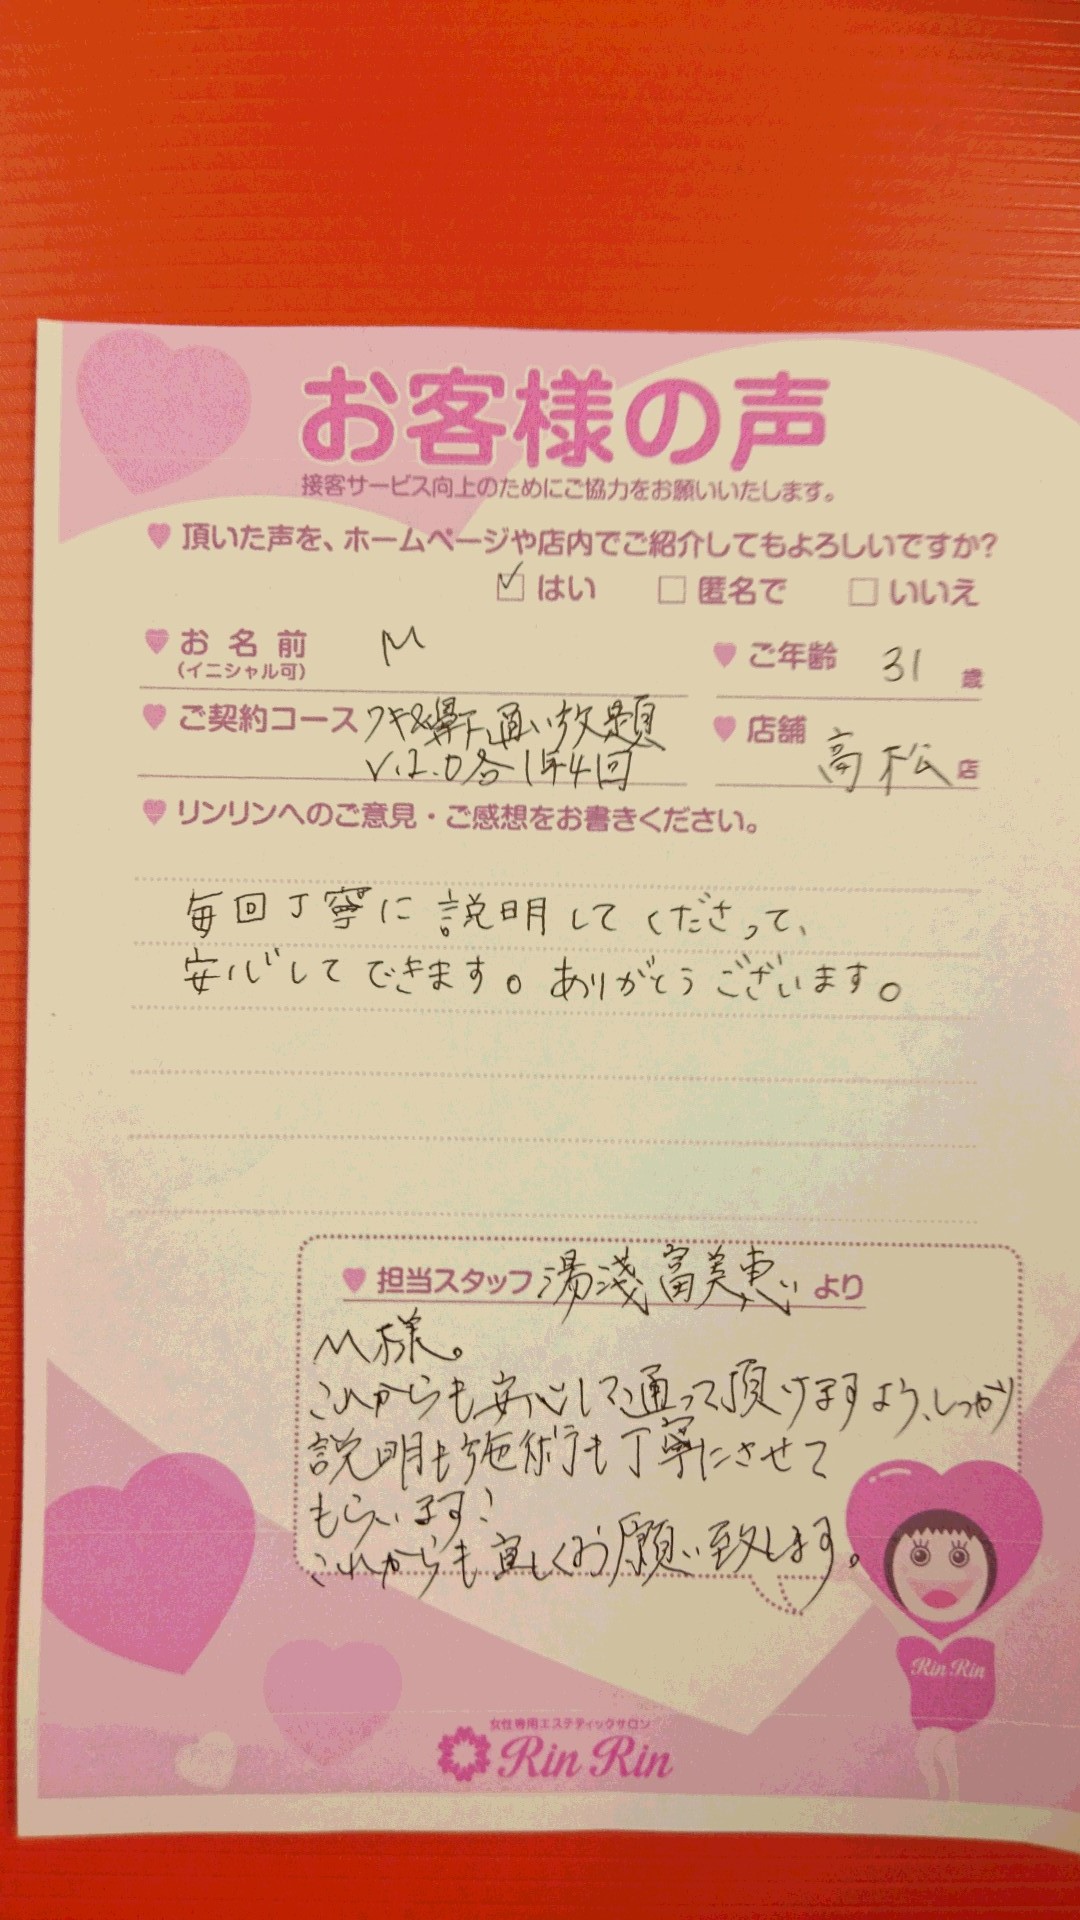 お客様の声
接客サービス向上のためにご協力をお願いいたします。
頂いた声を、ホームページや店内でご紹介してもよろしいですか?
はい 匿名で いいえ
お名前 M ご年齢 31 歳
(イニシャル可)
ご契約コース ワキ&鼻下通い放題 店舗 高松 店
V.I.O各1年4回
リンリンへのご意見・ご感想をお書きください。
毎回丁寧に説明してくださって、
安心してできます。ありがとうございます。
担当スタッフ 湯淺富美恵 より
M様。
これからも安心して通って頂けますよう、しっかり
説明も施術も丁寧にさせて
もらいます!
これからも宜しくお願い致します。
Rin Rin
女性専用エステティックサロン
Rin Rin